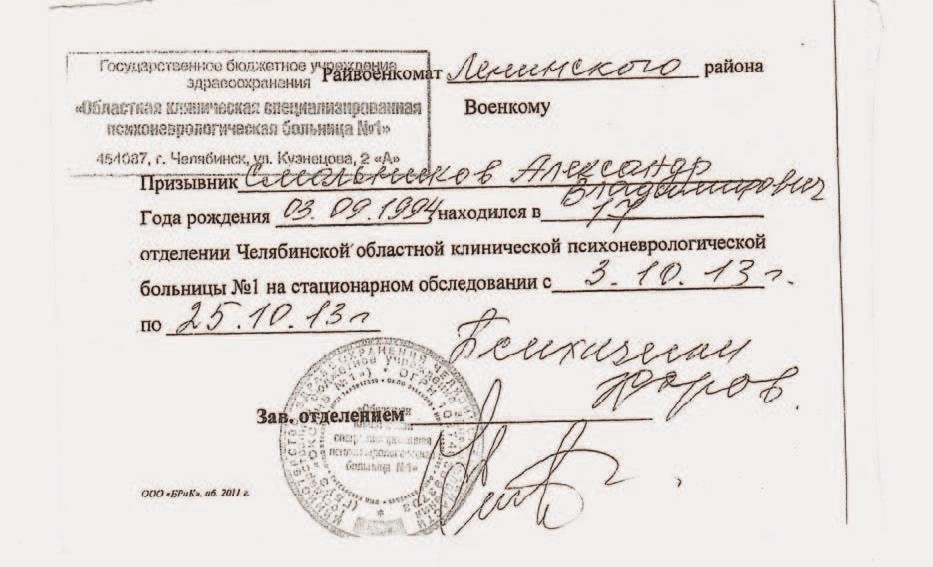 Государственное бюджетное учреждение
здравоохранения
«Областная клиническая специализированная
психоневрологическая больница №1»
454087, г. Челябинск, ул. Кузнецова, 2 «А»
Райвоенкомат Ленинского района
Военкому
Призывник Смольников Александр
Владимирович
Года рождения 03.09.1994, находился в 17
отделении Челябинской областной клинической психоневрологической
больницы №1 на стационарном обследовании с 3.10.13г.
по 25.10.13г
Психически
здоров.
Зав. отделением
«Областная
клиническая
специализированная
психоневрологическая
больница №1»
ООО «БРиК». иб. 2011 г.